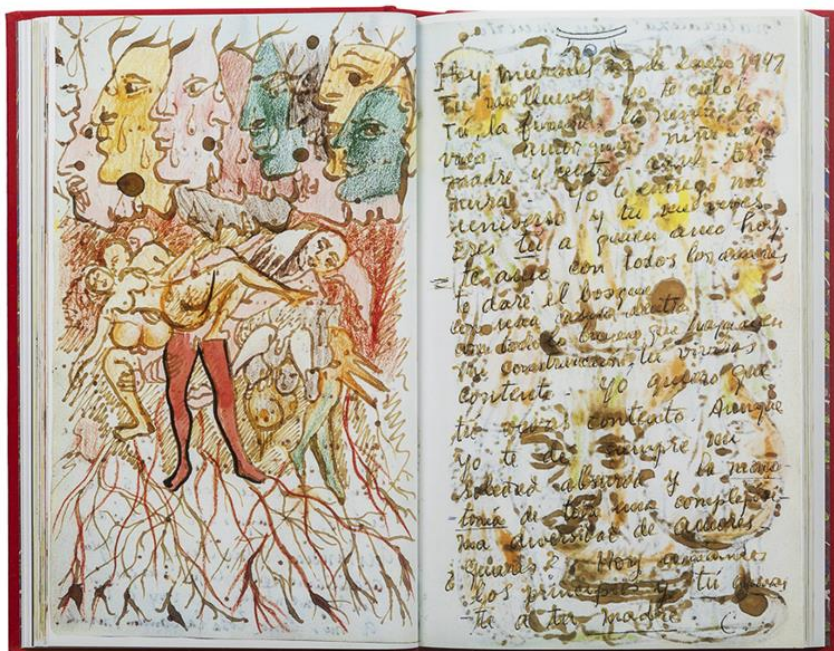 Hoy miercoles 22 de Enero 1947
Tu me llueves - yo te cielo
Tu la finura, la niñez, la
vida - amor mío - niño - viejo
madre y centro - azul - ter-
nura - Yo te entrego mi
universo y tu me vives
Eres tu a quien amo hoy.
te amo con todos los amores
te daré el bosque
con una casita dentro
con todo lo bueno que haya en
mi construccion, tu vivirás
contento - yo quiero que
tu vivas contento. Aunque
yo te dé siempre mi
soledad absurda y la mono
tonía de toda una complejísi-
ma diversidad de amores -
Quieres? Hoy
los principios y tu
a tu madre.